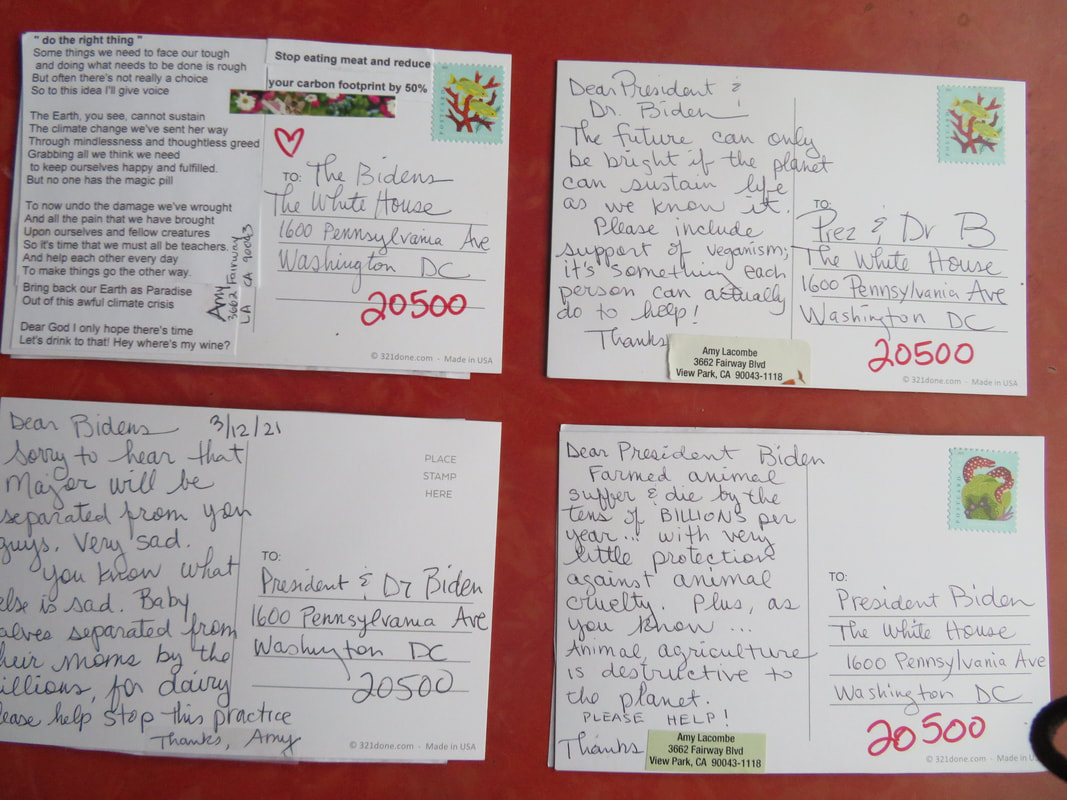 " do the right thing "
Some things we need to face our tough
and doing what needs to be done is rough
But often there's not really a choice
So to this idea I'll give voice
The Earth, you see, cannot sustain
The climate change we've sent her way
Through mindlessness and thoughtless greed
Grabbing all we think we need
to keep ourselves happy and fulfilled.
But no one has the magic pill
To now undo the damage we've wrought
And all the pain that we have brought
Upon ourselves and fellow creatures
So it's time that we must all be teachers.
And help each other every day
To make things go the other way.
Bring back our Earth as Paradise
Out of this awful climate crisis
Dear God I only hope there's time
Let's drink to that! Hey where's my wine?
Amy
3662 Fairway
LA CA 90043
Stop eating meat and reduce
your carbon footprint by 50%
TO: The Bidens
The White House
1600 Pennsylvania Ave
Washington DC
20500
© 321done.com - Made in USA
Dear President &
Dr. Biden!
The future can only
be bright if the planet
can sustain life
as we know it.
Please include
support of veganism;
it's something each
person can actually
do to help!
Thanks
Amy Lacombe
3662 Fairway Blvd
View Park, CA 90043-1118
TO:
Prez & Dr B
The White House
1600 Pennsylvania Ave
Washington DC
20500
© 321done.com - Made in USA
Dear Bidens 3/12/21
Sorry to hear that
Major will be
separated from you
guys. Very sad.
You know what
else is sad. Baby
alves separated from
heir moms by the
illions, for dairy
lease help stop this practice
Thanks, Amy
PLACE
STAMP
HERE
TO:
President & Dr Biden
1600 Pennsylvania Ave
Washington DC
20500
© 321done.com - Made in USA
Dear President Biden
Farmed animal
suffer & die by the
tens of BILLIONS per
year... with very
little protection
against animal
cruelty. Plus, as
you know...
Animal agriculture
is destructive to
the planet.
PLEASE HELP!
Thanks
Amy Lacombe
3662 Fairway Blvd
View Park, CA 90043-1118
TO:
President Biden
The White House
1600 Pennsylvania Ave
Washington DC
20500
© 321done.com - Made in US